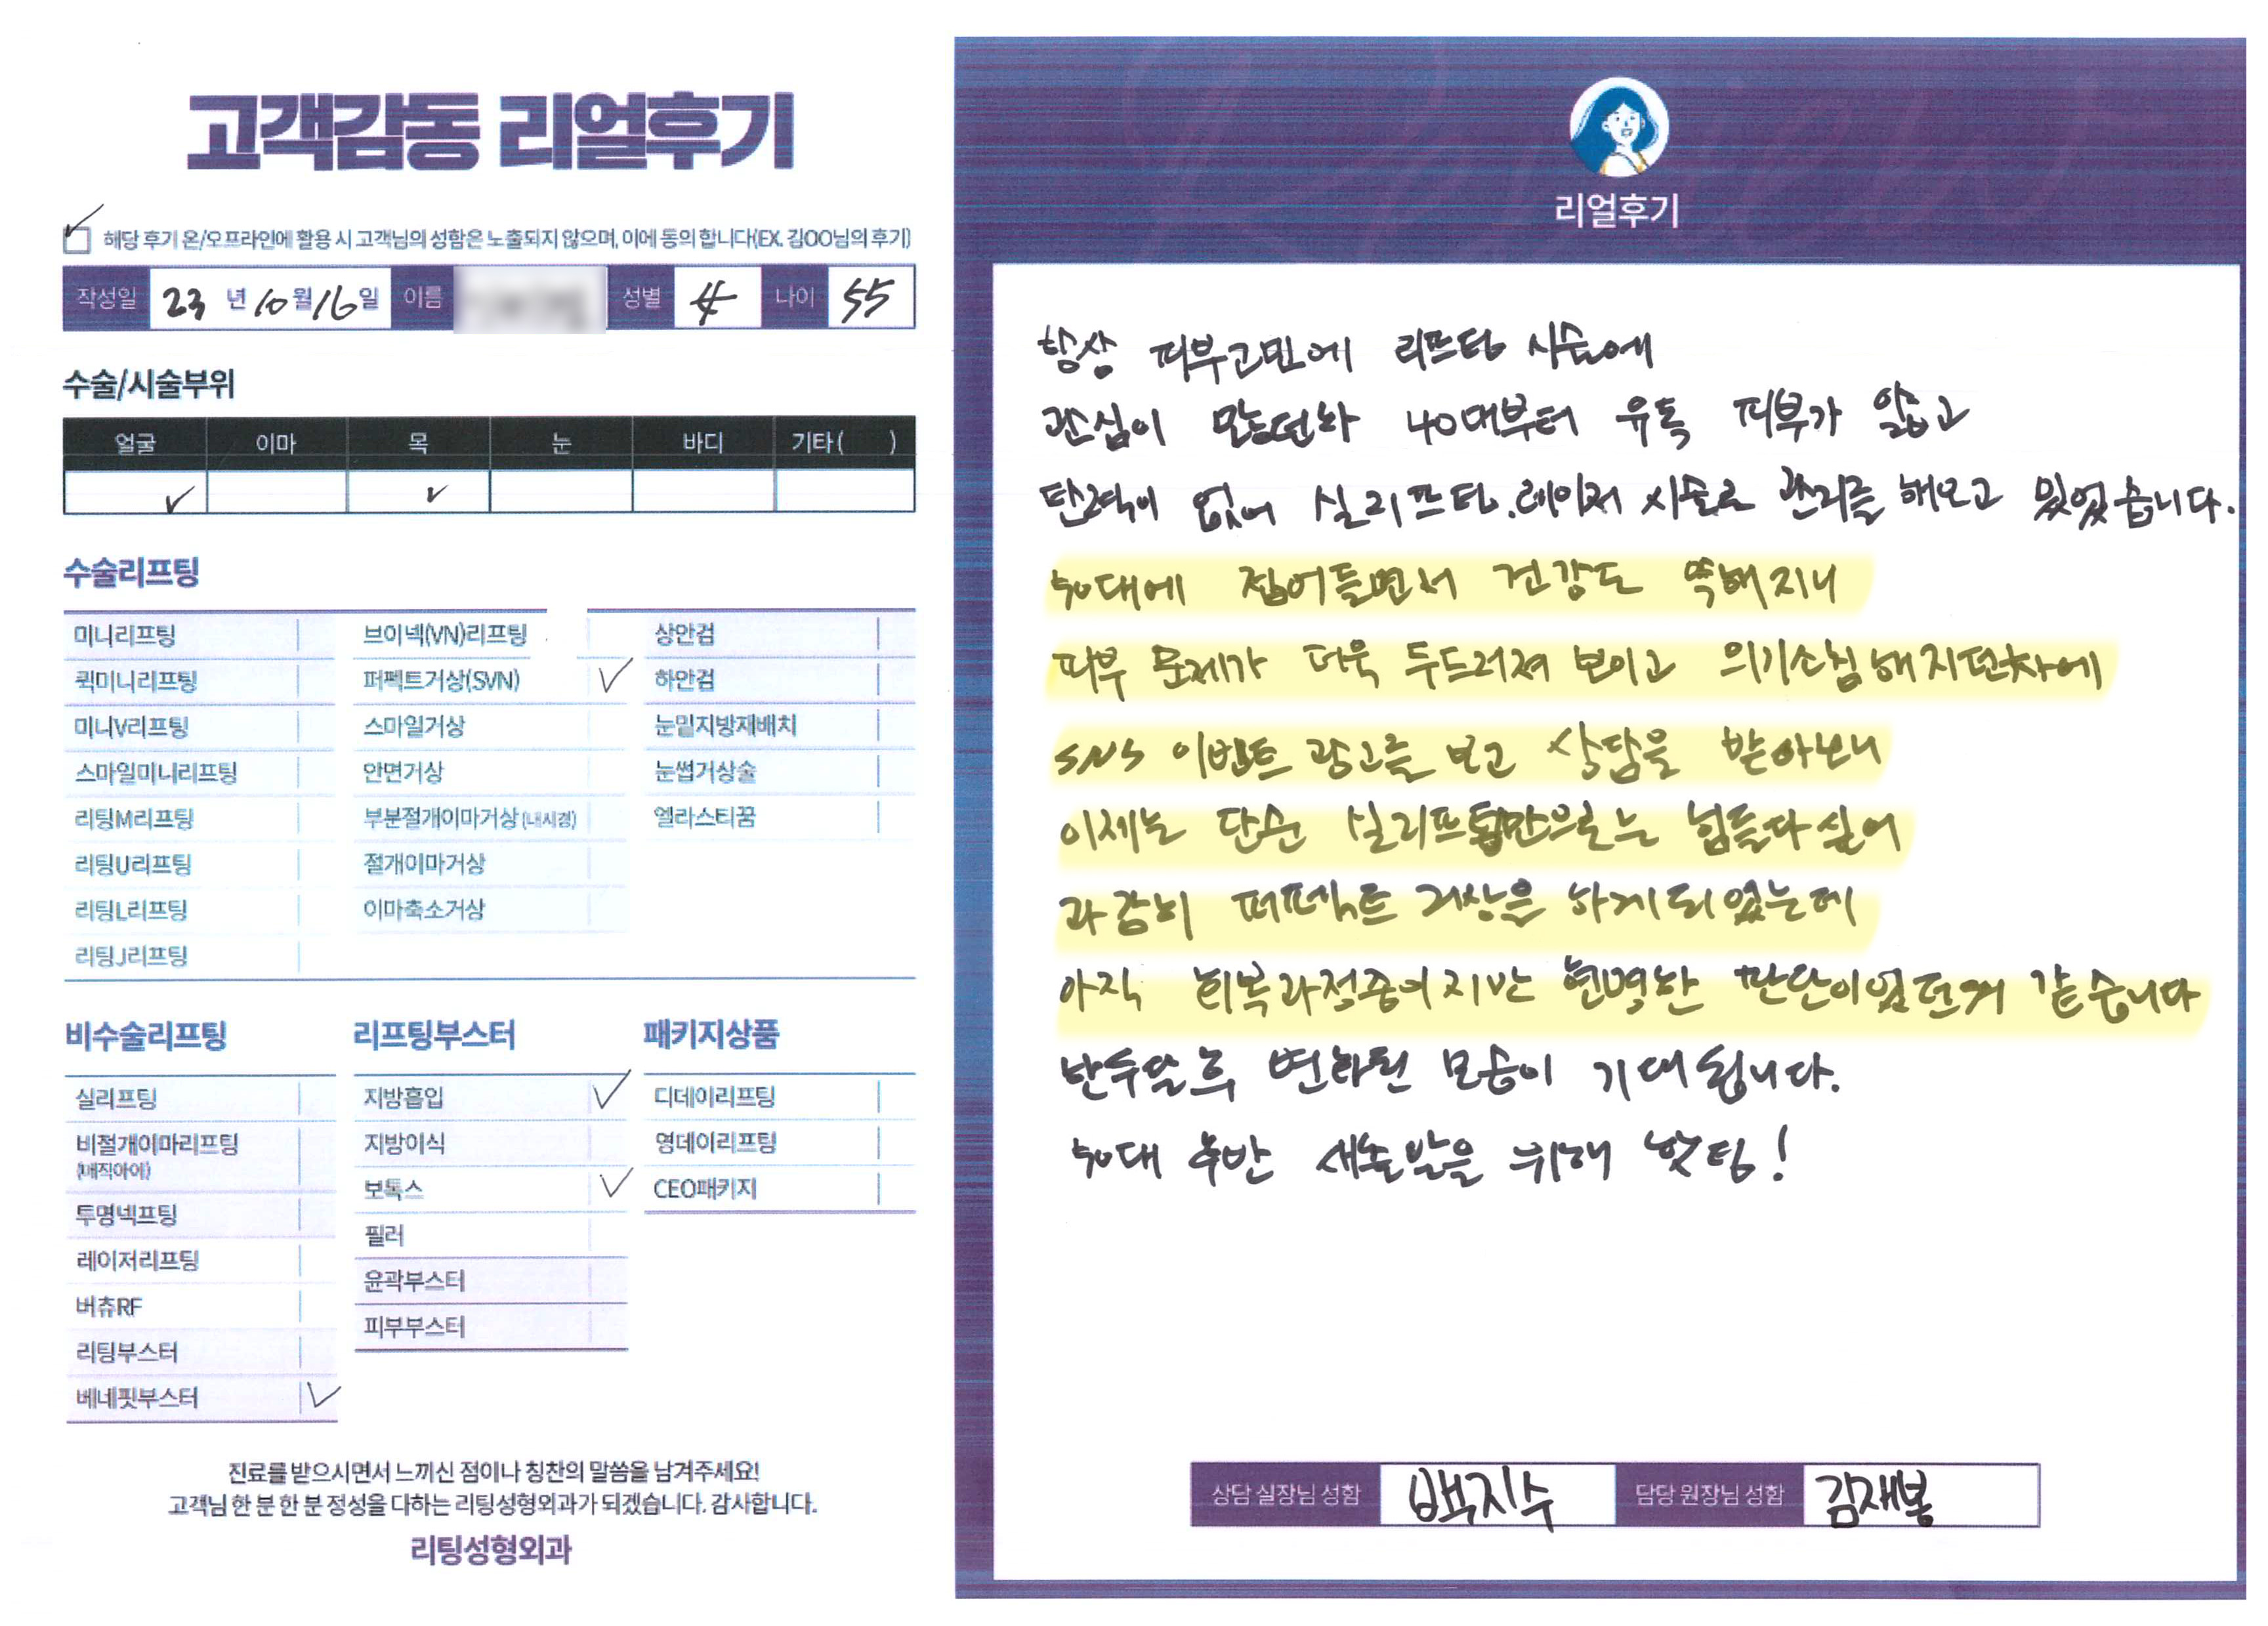 고객감동 리얼후기
해당 후기 온/오프라인에 활용 시 고객님의 성함은 노출되지 않으며, 이에 동의 합니다(EX. 김OO님의 후기)
작성일 23 년 10 월 16 일 이름 성별 나이 55
수술/시술부위
얼굴 이마 목 눈 바디 기타( )
수술리프팅
미니리프팅 브이넥(VN)리프팅 상안검
퀵미니리프팅 퍼펙트거상(SVN) 하안검
미니V리프팅 스마일거상 눈밑지방재배치
스마일미니리프팅 안면거상 눈썹거상술
리팅M리프팅 부분절개이마거상(내시경) 엘라스티꿈
리팅U리프팅 절개이마거상
리팅L리프팅 이마축소거상
리팅J리프팅
비수술리프팅 리프팅부스터 패키지상품
실리프팅 지방흡입 디데이리프팅
비절개이마리프팅 지방이식 영데이리프팅
(매직아이)
보톡스 CEO패키지
투명넥프팅 필러
레이저리프팅 윤곽부스터
버츄RF 피부부스터
리팅부스터
베네핏부스터
진료를 받으시면서 느끼신 점이나 칭찬의 말씀을 남겨주세요!
고객님 한 분 한 분 정성을 다하는 리팅성형외과가 되겠습니다. 감사합니다.
리팅성형외과
리얼후기
항상 피부고민에 리프팅 시술에
관심이 많던차 40대부터 유독 피부가 얇고
탄력이 없어 실리프팅.레이저 시술로 관리를 해오고 있었습니다.
50대에 접어들면서 건강도 약해지니
피부 문제가 더욱 두드러져 보이고 의기소침해지던차에
SNS 이벤트 광고를 보고 상담을 받아보니
이제는 단순 실리프팅만으로는 힘들다싶어
과감히 퍼펙트 거상을 하게되었는데
아직 회복과정중이지만 현명한 판단이었던거 같습니다
한두달후 변화된 모습이 기대됩니다.
50대 후반 새출발을 위해 홧팅!
상담 실장님 성함 백지수 담당 원장님 성함 김재봉